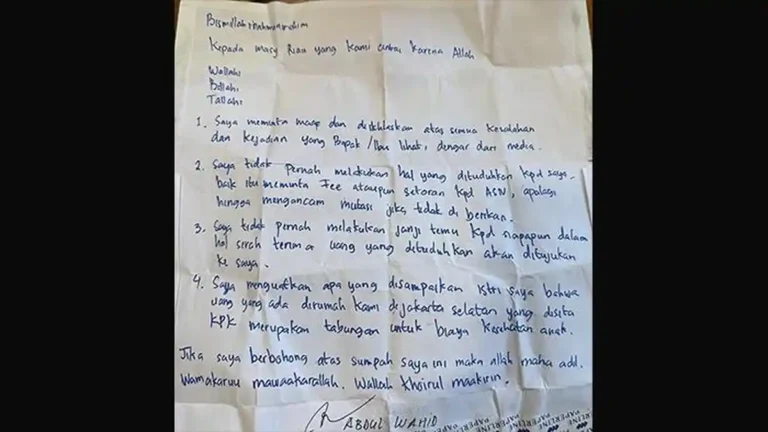 Bismillahirrahmanirrahim
Kepada masy Riau yang kami cintai karena Allah
Wallahi
Billahi
Tallahi
1. Saya meminta maap dan diikhlaskan atas semua kesalahan
dan kejadian yang Bapak/Ibu lihat, dengar dari media.
2. Saya tidak pernah melakukan hal yang dituduhkan kpd saya.
baik itu meminta Fee ataupun setoran kpd ASN, apalagi
hingga mengancam mutasi jika tidak di berikan.
3. Saya tidak pernah melakukan janji temu kpd siapapun dalam
hal serah terima uang yang dituduhkan akan ditujukan
ke saya.
4. Saya menguatkan apa yang disampaikan istri saya bahwa
uang yang ada dirumah kami dijakarta selatan yang disita
KPK merupakan tabungan untuk biaya kesehatan anak.
Jika saya berbohong atas sumpah saya ini maka allah maha adil.
Wamakaruu mawaakarallah. Wallah khoirul maakirin.
ABDUL WAHID
PAPERLINE